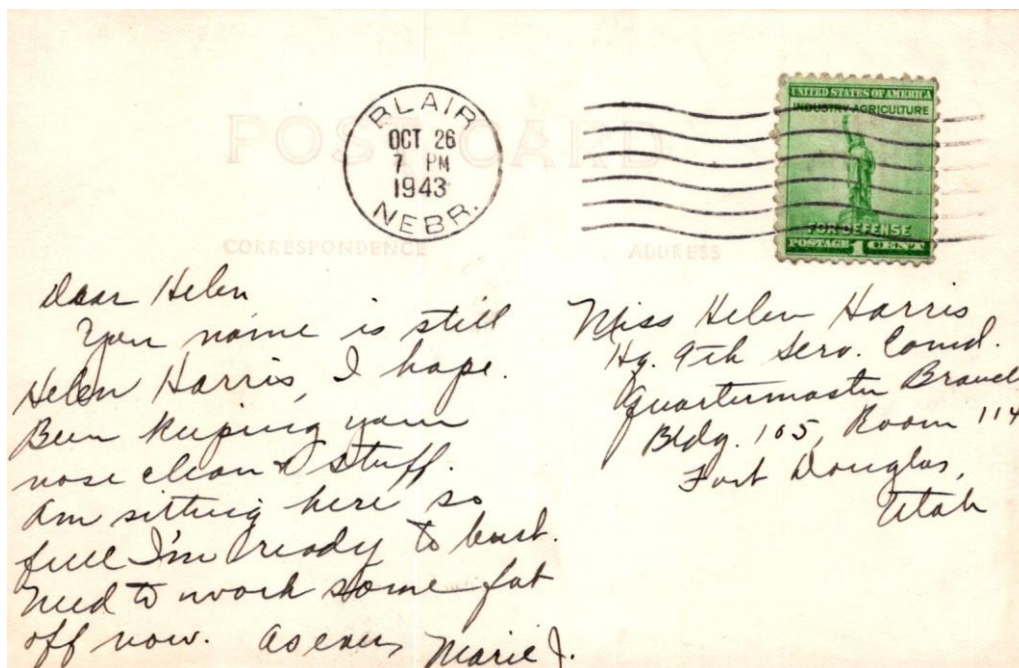 POST CARD
BLAIR
OCT 26
7 PM
1943
NEBR.
UNITED STATES OF AMERICA
INDUSTRY AGRICULTURE
FOR DEFENSE
POSTAGE 1 CENT
CORRESPONDENCE
ADDRESS
Dear Helen
Your name is still
Helen Harris, I hope.
Been keeping your
nose clean & stuff.
Am sitting here so
full I'm ready to bust.
Need to work some fat
off now. As ever, Marie J.
Miss Helen Harris
Hq. 9th Serv. Comd.
Quartermaster Branch
Bldg. 105, Room 114
Fort Douglas,
Utah